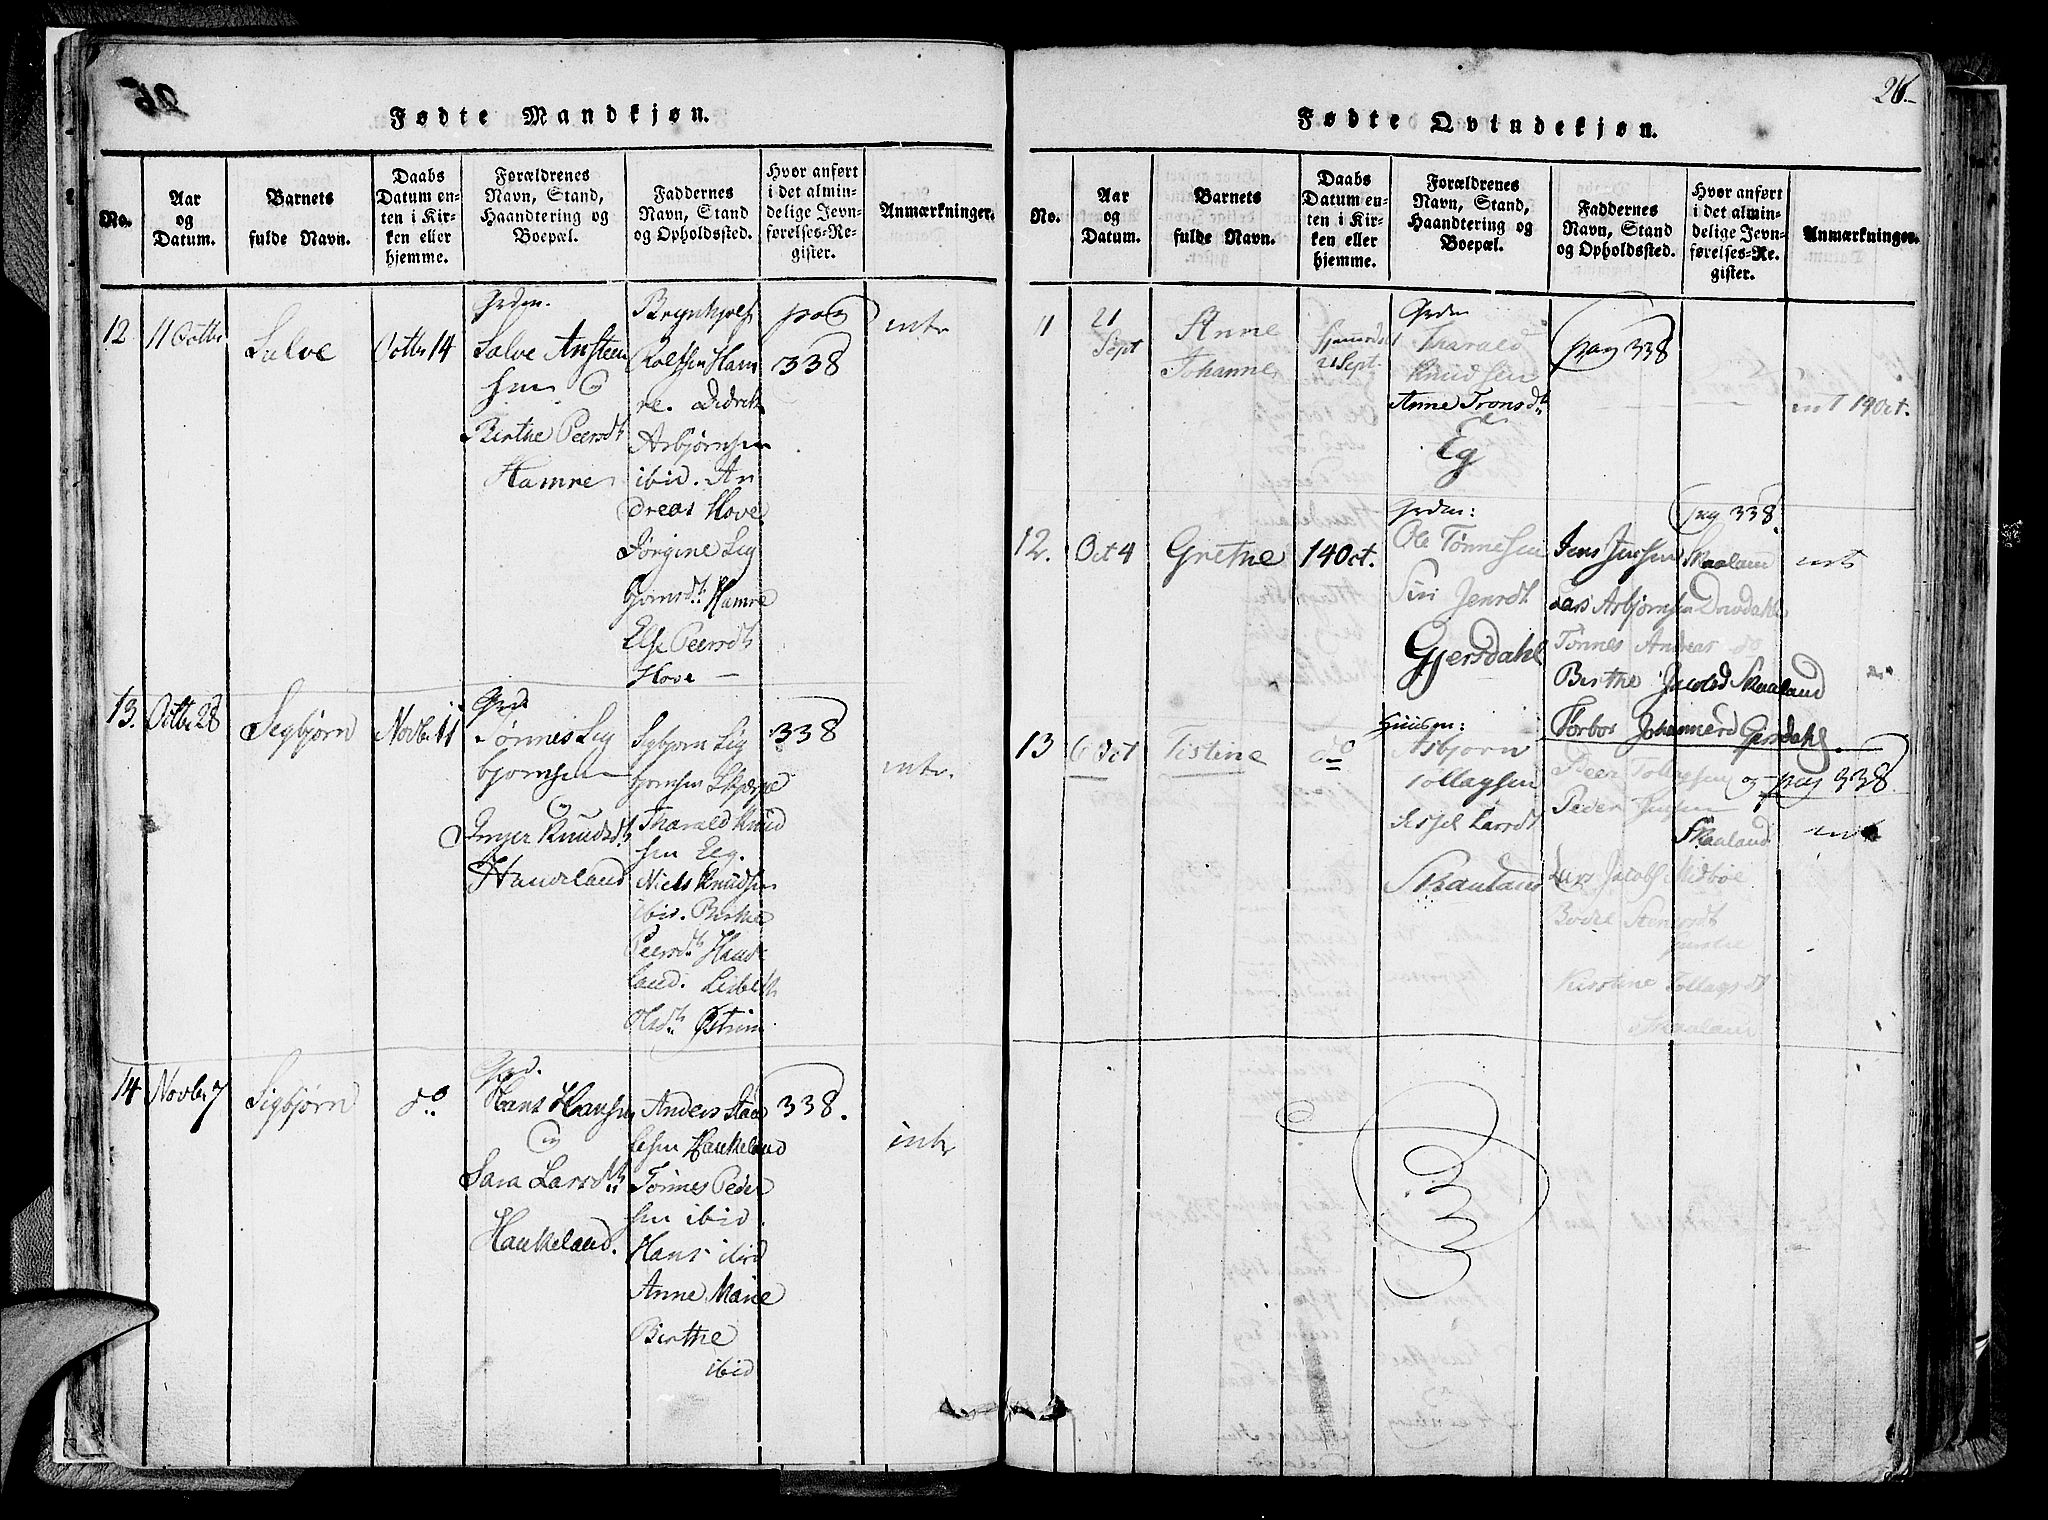 Fødte Mandkjøn.
No.
Aar
og
Datum.
Barnets
fulde Navn.
Daabs
Datum en-
ten i Kir-
ken eller
hjemme.
Forældrenes
Navn, Stand,
Haandtering og
Boepæl.
Faddernes
Navn, Stand
og Opholdssted.
Hvor anført
i det almin-
delige Jevn-
førelses-Re-
gister.
Anmærkninger.
12
11 Octbr
Salve
Octbr 14
Grdm.
Salve Ansteen
sen
Birthe Peersdt
Hamre
Brynhjolf
Rolfsen Ham
re. Didrek
Asbjørnsen
ibid. An
dreas Hove
Jørgine Sig
bjornsdt Hamre
Else Peersdt
Hove
pag
338
intr
13.
Octbr 28
Segbjørn
Novb. 11
Grd.
Tönnes Sig
bjornsen
Inger Knudsdt
Haveland
Sigbjorn Sig
bjornsen Skjerpe
Tharald Knud
sen Eeg.
Niels Knudsen
ibid. Birthe
Peersdt Have
land. Lisbeth
Olsdt Østrim
338
intr.
14
Novbr 7
Sigbjørn
do
Grd.
Hans Hansen
Sara Larsdt
Haukeland.
Anders Staa
lesen Haukeland
Tönnes Peder
sen ibid
Hans ibid
Anne Marie
Birthe
ibid
338.
intr
26
Fødte Qvindekjøn.
No.
Aar
og
Datum.
Barnets
fulde Navn.
Daabs
Datum en-
ten i Kir-
ken eller
hjemme.
Forældrenes
Navn, Stand,
Haandtering og
Boepæl.
Faddernes
Navn, Stand
og Opholdssted.
Hvor anført
i det almin-
delige Jevn-
førelses-Re-
gister.
Anmærkninger.
11
21
Sept
Anne
Johanne
21 Sept.
Grdm
Tharald
Knudsen
Anne Tronsdt
Eg
pag 338
int 14 Oct.
12.
Oct 4
Grethe
14 Oct.
Grdm:
Ole Tönnesen
Siri Jensdt
Gjersdahl
pag 338.
Jens Jensen Skaaland
Lars Asbjørnsen Dresdahl
Tonnes Andreas do
Birthe Jacobsd Skaaland
Torbor Johannesd Gjersdahl.
int
13
6 Oct
Tistine
do
Huusm:
Asbjorn
Tollagsen
Sissel Larsdt
Skaaland
Peer Tollagsen og
Peder Jensen
Skaaland
Lars Jacobs Midbøe
Bodil Stensdt
Kirstine Tollagsdt
Skaaland
pag 338.
int